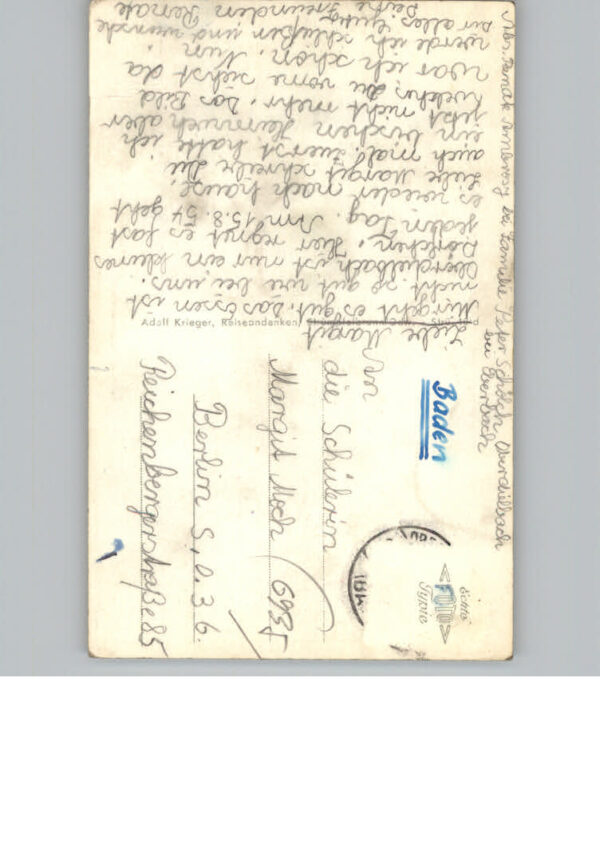 Abs. Renate bei Familie Peter Schölch, Oberdielbach
bei Eberbach
Liebe Margit
Mir geht es gut. Das Essen ist
nicht so gut wie bei uns.
Oberdielbach ist nur ein kleines
Dörfchen. Hier regnet es fast
jeden Tag. Am 15.8.54 geht
es wieder nach hause.
Liebe Margit schreibe Du
auch mal. Zuerst hatte ich
ein bischen Heimweh aber
jetzt nicht mehr. Das Bild
welches Du vorne siehst da
war ich schon. Nun
werde ich schließen und wünsche
Dir alles Gute
Deine Freundin Renate
Adolf Krieger, Reiseandenken,
Baden
Echte
FOTO
Typie
An
die Schülerin
Margit Moch
Berlin S.O.36.
Reichenbergerstraße 85